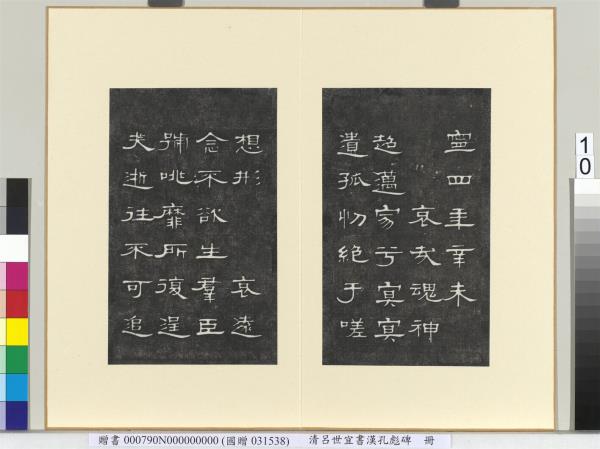 寧四年辛未
哀哉魂神
超邁家兮冥冥
遺孤忉絕于嗟
想形 哀遠
念不欲生羣臣
號咷靡所復逞
夫逝往不可追
10
贈書 000790N000000000 (國贈 031538) 清呂世宜書漢孔彪碑 冊